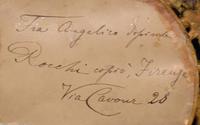 Fra Angelico dipinse
Rocchi copiò Firenze
Via Cavour 28